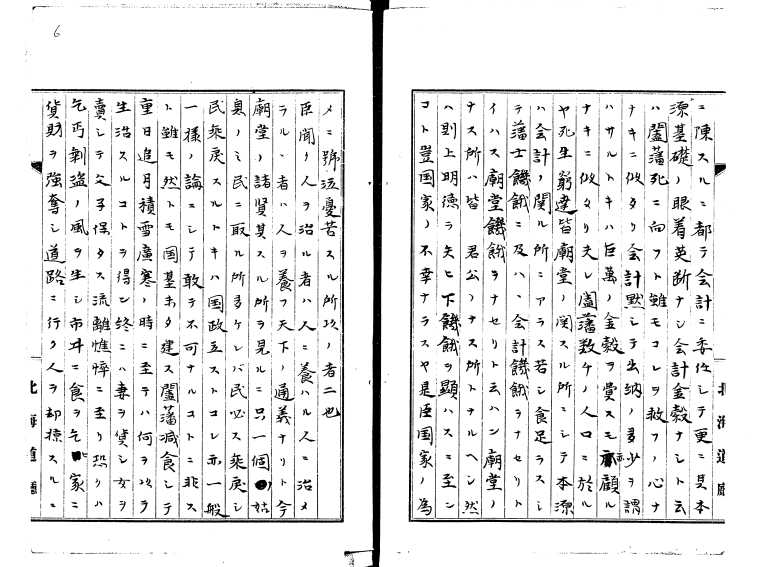 ニ陳スルニ都テ会計ニ委任シテ更ニ其本
源基礎ノ眼着英断ナシ会計金穀ナシト云
ハ闔藩死ニ向フト雖モコレヲ救フノ心ナ
キニ似タリ会計黙シテ出納ノ多少ヲ謂
ハサルトキハ巨萬ノ金穀ヲ費スモ亦顧ル
ナキニ似タリ夫レ闔藩数ケノ人口ニ於ル
ヤ死生窮達皆廟堂ノ関スル所ニシテ本源
ハ会計ノ関ル所ニアラス若シ食足ラスシ
テ藩士饑餓ニ及ハヽ会計饑餓ヲナセリト
イハス廟堂饑餓ヲナセリト云ハン廟堂ノ
ナス所ハ皆君公ノナス所トナルヘシ然
ハ則上明徳ヲ失ヒ下饑餓ヲ顕ハスニ至ン
コト豈国家ノ不幸ナラスヤ是臣国家ノ為
北海道廳
メニ號泣憂苦スル所以ノ者二也
臣聞ク人ヲ治ル者ハ人ニ養ハル人ニ治メ
ラルヽ者ハ人ヲ養フ天下ノ通義ナリト今
廟堂ノ諸賢其スル所ヲ見ルニ只一個ノ姑
息ノミ民ニ取ル所多ケレバ民必ス乖戻シ
民乖戻スルトキハ国政立ストコレ亦一般
一様ノ論ニシテ敢テ不可ナルコトニ非ス
ト雖モ然トモ国基未タ建ス闔藩減食シテ
重日追月積雪廣寒ノ時ニ至テハ何ヲ以テ
生活スルコトヲ得ン終ニハ妻ヲ貸シ女ヲ
賣シテ父子保タス流離憔悴ニ至リ恐クハ
乞丐剽盗ノ風ヲ生シ市井ニ食ヲ乞家ニ
貨財ヲ強奪シ道路ニ行ク人ヲ却掠スルニ
北海道廳
6